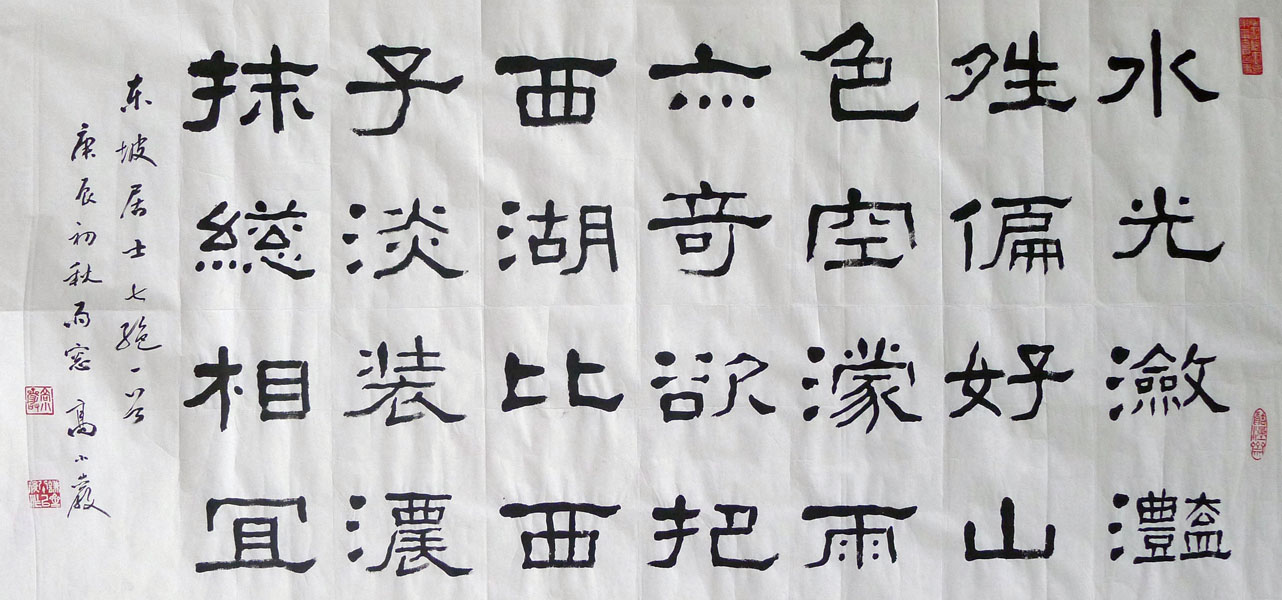 水光瀲灩
夝偏好山
色空濛雨
亦奇欲把
西湖比西
子淡装濃
抹総相宜
东坡居士七绝一首
庚辰初秋雨窓 高小巖